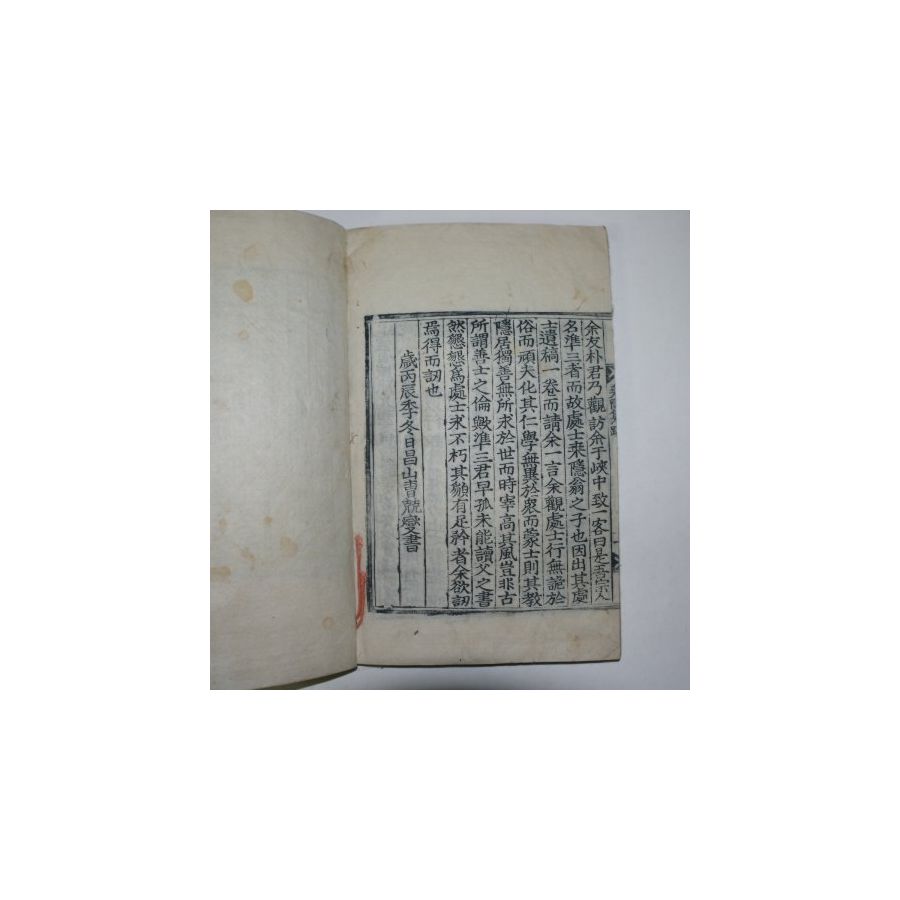 余友朴君乃觀訪余于峽中致一客曰是吾宗人
名準三者而故處士來隱翁之子也因出其處
士遺稿一卷而請余一言余觀處士行無詭於
俗而頑夫化其仁學無異於衆而蒙士則其教
隱居獨善無所求於世而時宰高其風豈非古
所謂善士之倫歟準三君早孤未能讀父之書
然懇懇爲處士求不朽其顚有足矜者余欲訒
焉得而訒也
歲丙辰季冬日昌山曺兢燮書